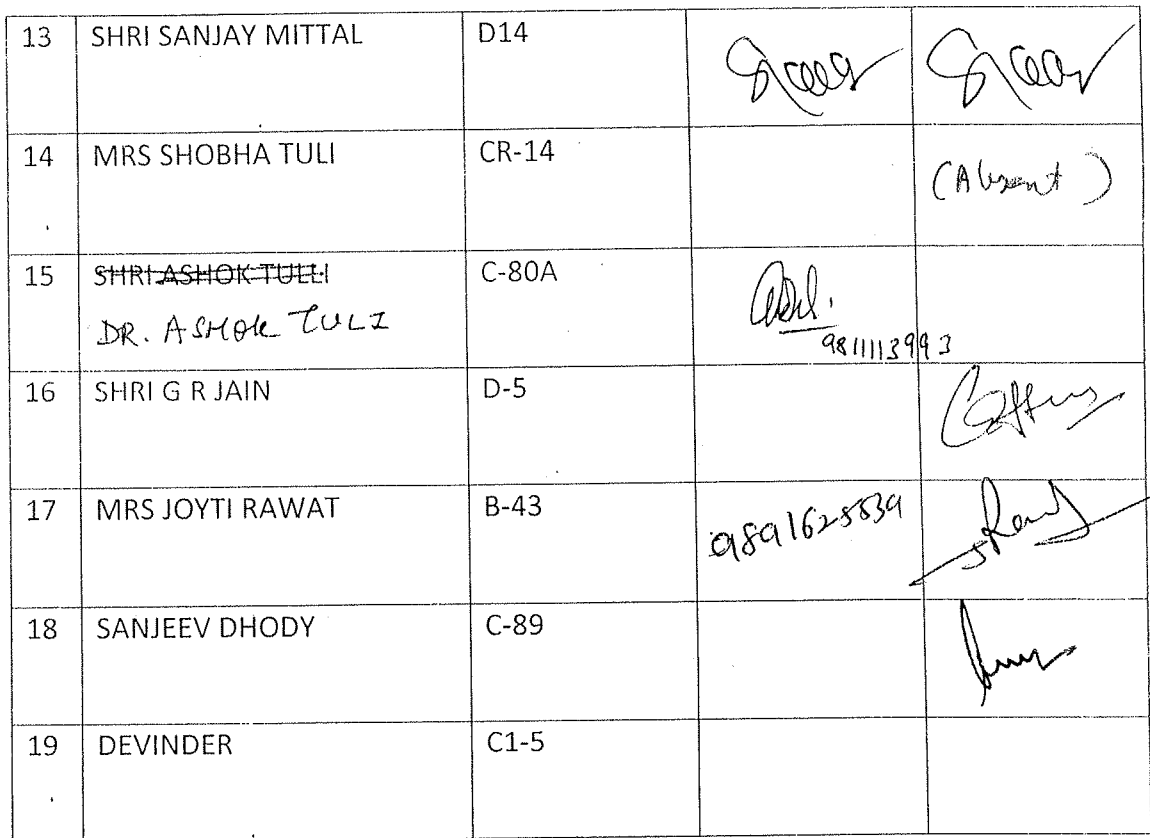 13 SHRI SANJAY MITTAL D14
14 MRS SHOBHA TULI CR-14 (Absent)
15 SHRI ASHOK TULLI C-80A
DR. ASHOK TULI
9811113993
16 SHRI G R JAIN D-5
17 MRS JOYTI RAWAT B-43 9891625539
18 SANJEEV DHODY C-89
19 DEVINDER C1-5